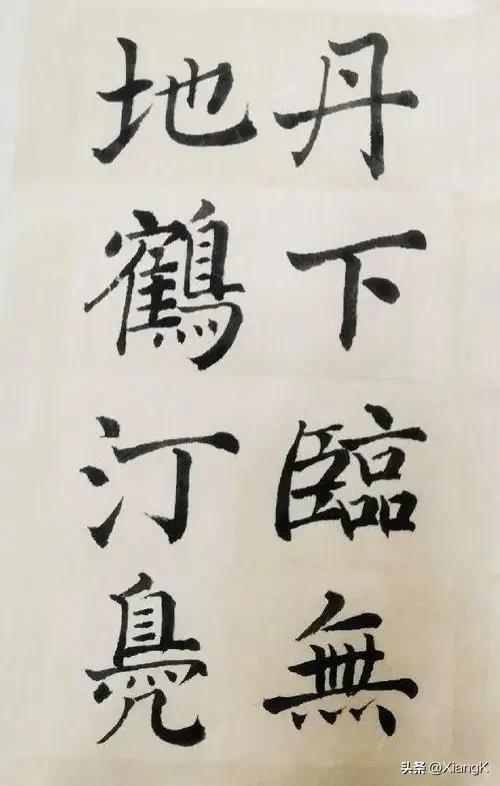 丹下臨無
地鶴汀鳧
头条 @XiangK